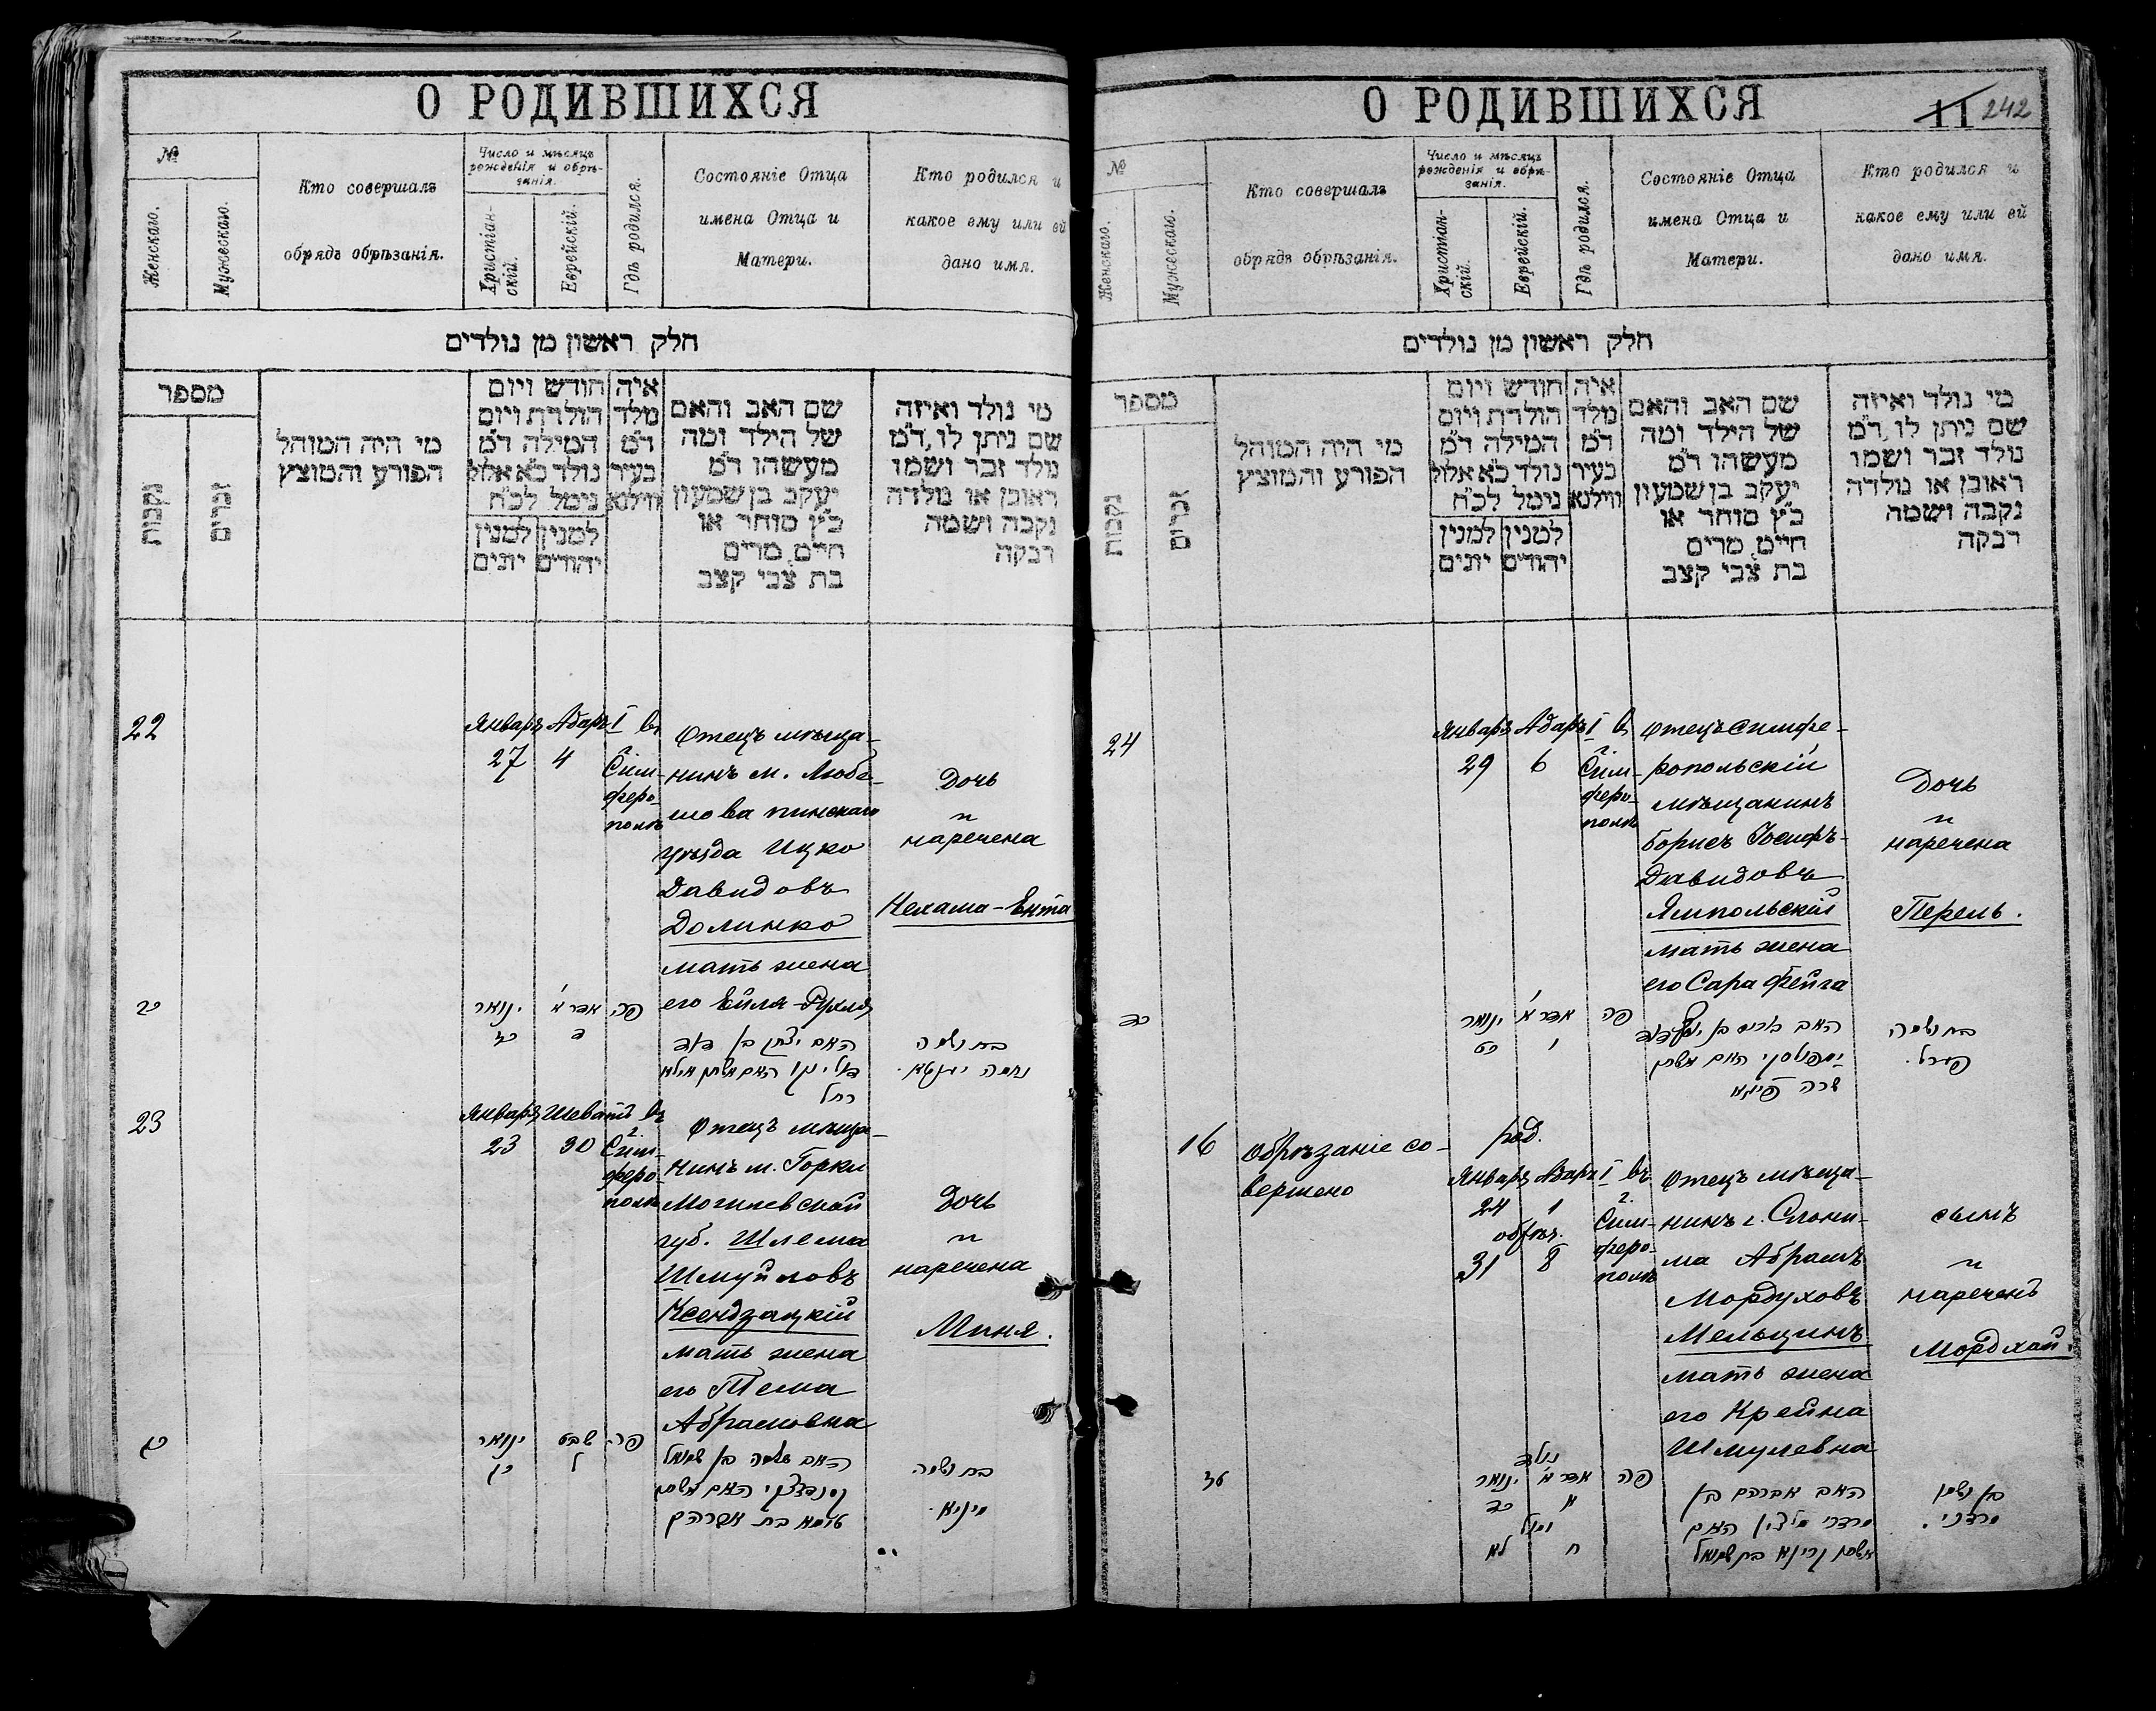 О РОДИВШИХСЯ
№
Женскаго.
Мужескаго.
Кто совершалъ
обрядъ обрѣзанія.
Число и мѣсяцъ
рожденія и обрѣ-
занія.
Христіан-
скій.
Еврейскій.
Гдѣ родился.
Состояніе Отца
имена Отца и
Матери.
Кто родился и
какое ему или ей
дано имя.
חלק ראשון מן נולדים
מספר
נקבות
זכרים
מי היה המוהל
הפורע והמוצץ
חודש ויום
הולדת ויום
המילה ד״מ
נולד כ״א אלול
נימל לכ״ח
למנין
יהודים
למנין
יונים
איה
מלד
ד״מ
בעיר
ווילנא
שם האב והאם
של הילד ומה
מעשהו ד״מ
יעקב בן שמעון
כ״ץ סוחר או
חייט מרים
בת צבי קצב
מי נולד ואיזה
שם ניתן לו ד״מ
נולד זכר ושמו
ראובן או נולדה
נקבה ושמה
רבקה
22
Январь
27
Адаръ I
4
въ
г.
Сим-
феро-
полѣ
Отецъ мѣща-
нинъ м. Любе-
шова пинскаго
уѣзда Ицко
Давидовъ
Долинко
мать жена
его Бейля-Рухля
Дочь
и
наречена
Нехама-Ента
כב
ינואר
כז
אדר א׳
ד
פה
האב יצחק בן דוד
דאלינקו האם אשתו ביילא
רחל
בת ושמה
נחמה יענטא.
23
Январь
23
Шеватъ
30
въ
г.
Сим-
феро-
полѣ
Отецъ мѣща-
нинъ м. Горки
Могилевской
губ. Шлема
Шмуйловъ
Ксендзацкій
мать жена
его Тема
Абрамовна
Дочь
и
наречена
Миня.
כג
ינואר
כג
שבט
ל
פה
האב שלמה בן שמואל
קסנדצקי האם אשתו
טעמא בת אברהם
בת ושמה
מיניא.
О РОДИВШИХСЯ
11 242
№
Женскаго.
Мужескаго.
Кто совершалъ
обрядъ обрѣзанія.
Число и мѣсяцъ
рожденія и обрѣ-
занія.
Христіан-
скій.
Еврейскій.
Гдѣ родился.
Состояніе Отца
имена Отца и
Матери.
Кто родился и
какое ему или ей
дано имя.
חלק ראשון מן נולדים
מספר
נקבות
זכרים
מי היה המוהל
הפורע והמוצץ
חודש ויום
הולדת ויום
המילה ד״מ
נולד כ״א אלול
נימל לכ״ח
למנין
יהודים
למנין
יונים
איה
מלד
ד״מ
בעיר
ווילנא
שם האב והאם
של הילד ומה
מעשהו ד״מ
יעקב בן שמעון
כ״ץ סוחר או
חייט מרים
בת צבי קצב
מי נולד ואיזה
שם ניתן לו ד״מ
נולד זכר ושמו
ראובן או נולדה
נקבה ושמה
רבקה
24
Январь
29
Адаръ I
6
въ
г.
Сим-
феро-
полѣ
Отецъ симфе-
ропольскій
мѣщанинъ
Борисъ Іосифъ-
Давидовъ
Ямпольскій
мать жена
его Сара Фейга
Дочь
и
наречена
Перель.
כד
ינואר
כט
אדר א׳
ו
פה
האב בוריס בן יוסף דוד
יאמפולסקי האם אשתו
שרה פייגא
בת ושמה
פערל.
16
Обрѣзаніе со-
вершено
род.
Январь
24
Адаръ I
1
обрѣз.
31
8
въ
г.
Сим-
феро-
полѣ
Отецъ мѣща-
нинъ г. Слони-
ма Абрамъ
Мордуховъ
Мельцинъ
мать жена
его Крейна
Шмулевна
сынъ
и
нареченъ
Мордхай.
נולד
ינואר
כד
אדר א׳
א
ונימול
לא
ח
פה
האב אברהם בן
מרדכי מילצין האם
אשתו קריינא בת שמואל
בן ושמו
מרדכי.